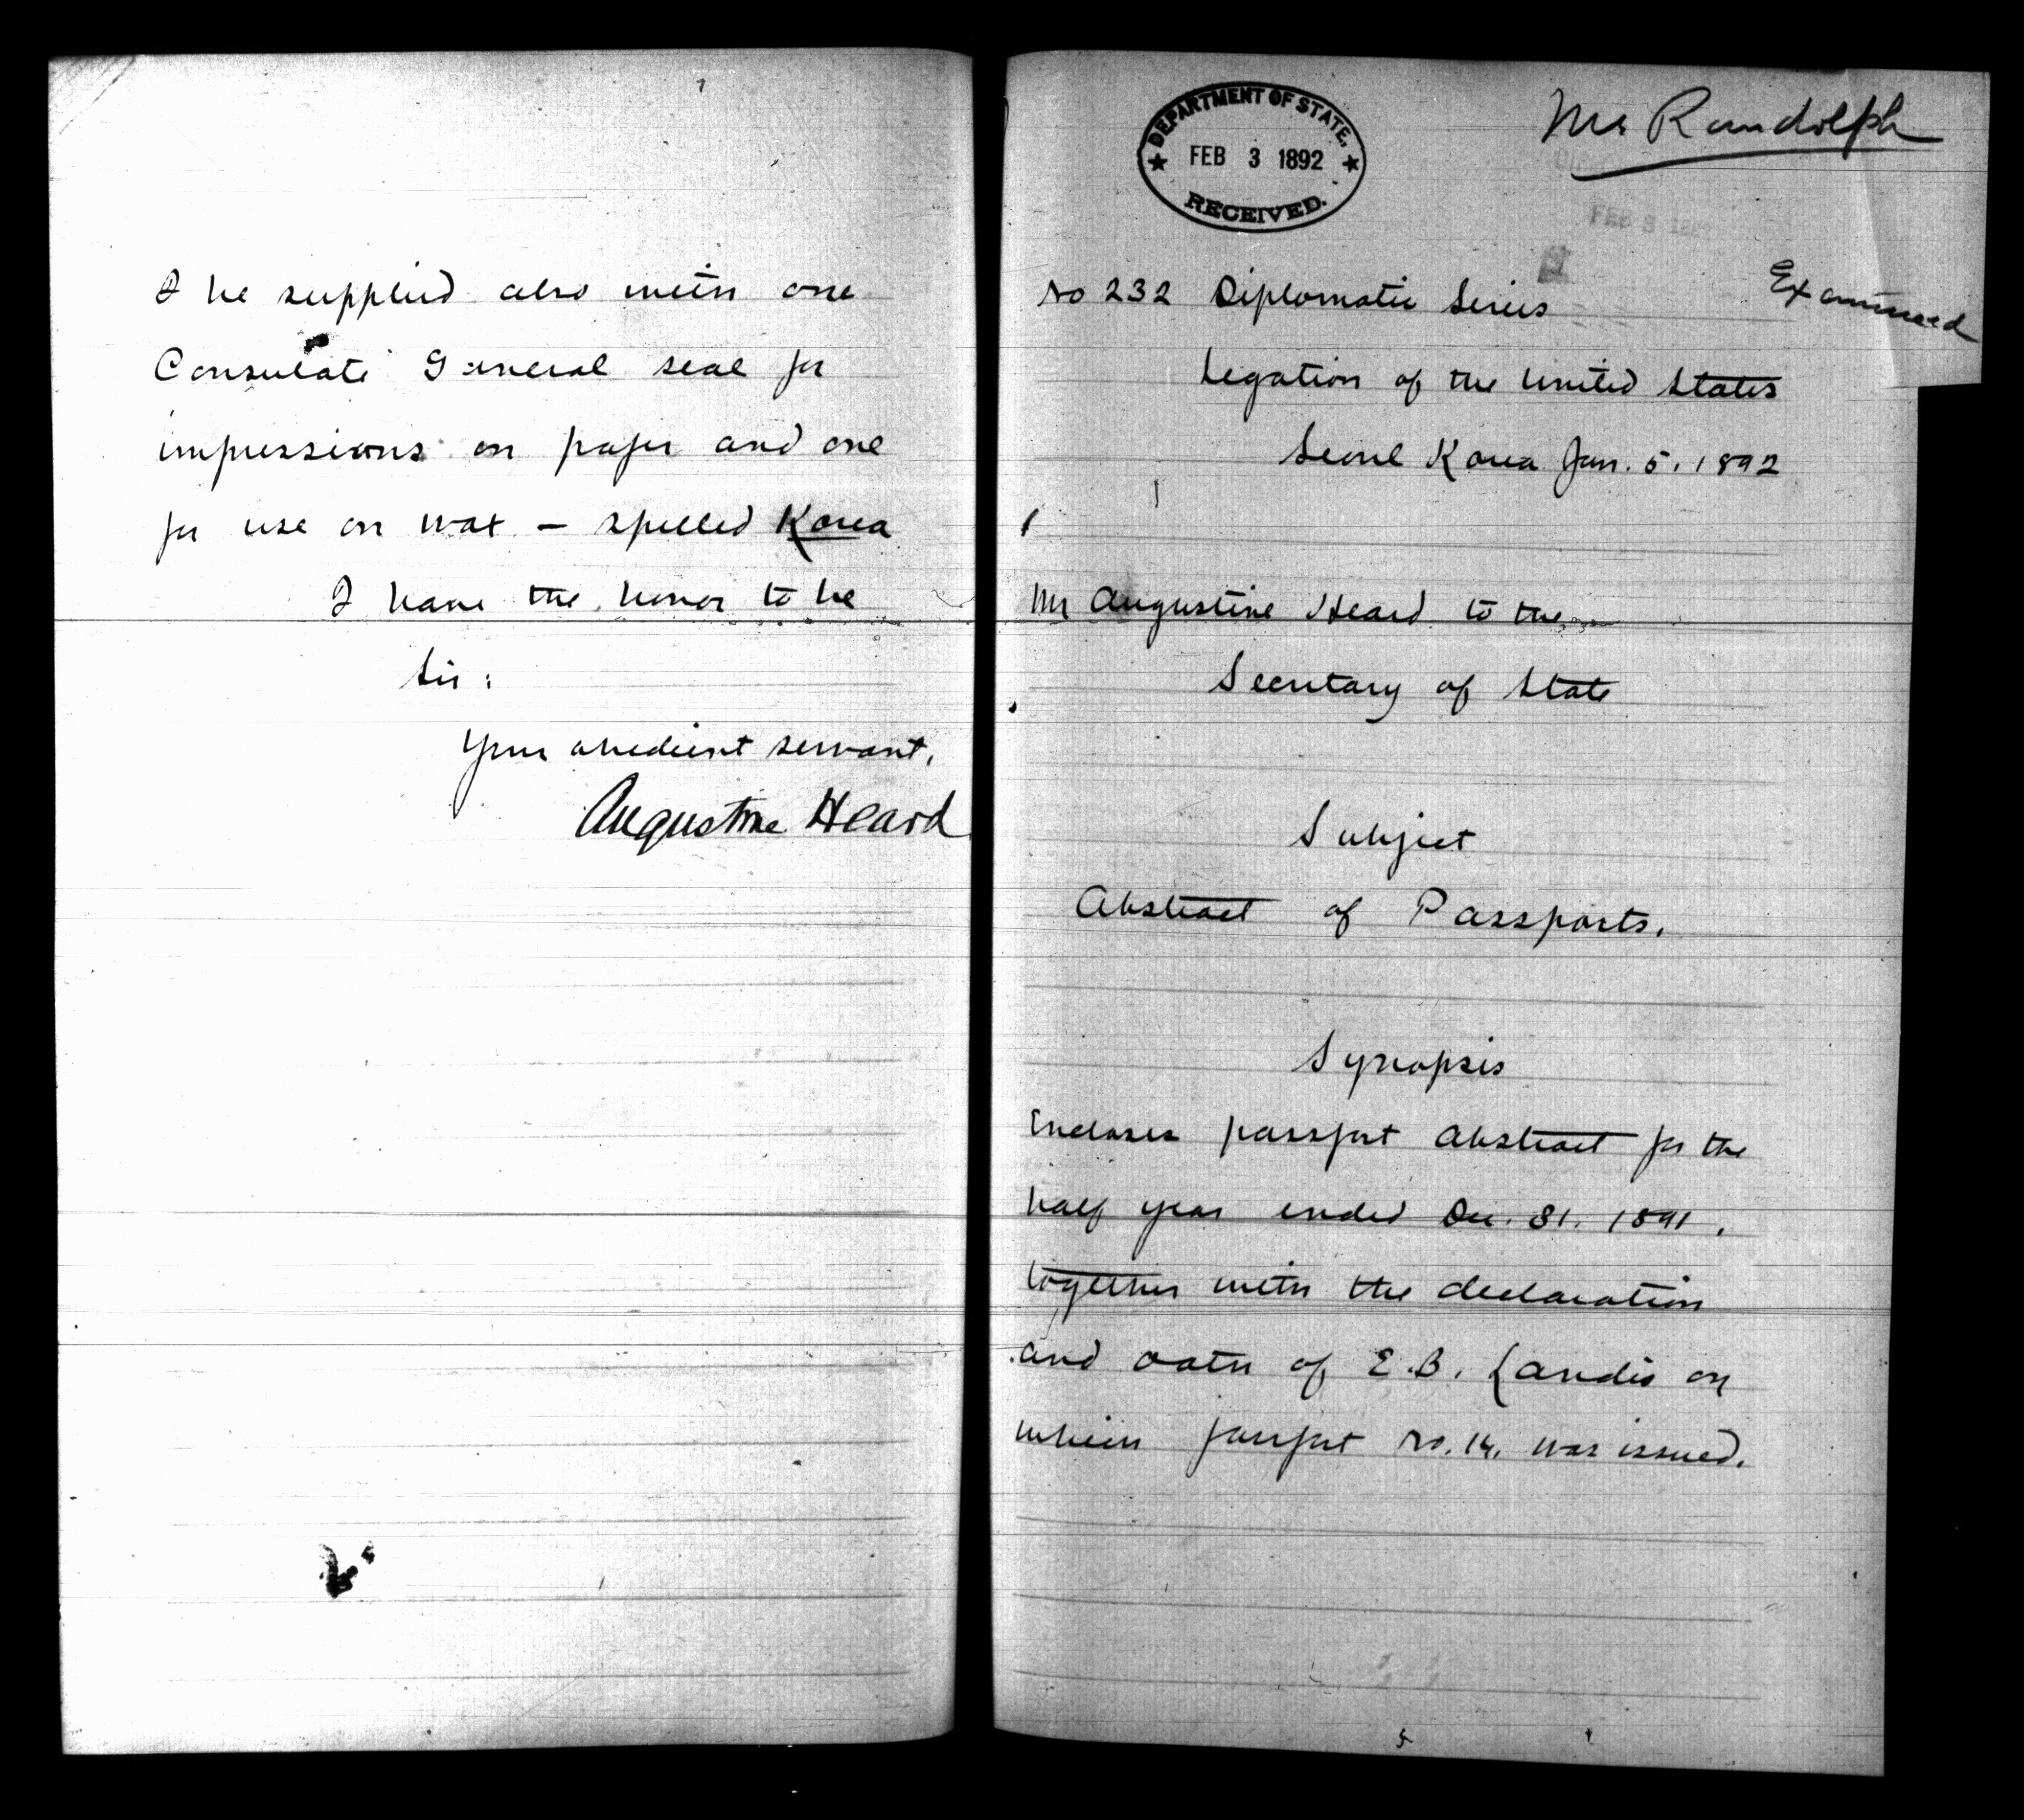 I be supplied also with one
Consulate General seal for
impressions on paper and one
for use on wax – spelled Korea
I have the honor to be
Sir:
Your obedient servant,
Augustine Heard
DEPARTMENT OF STATE.
FEB 3 1892
RECEIVED.
Mr Randolph
FEB 3 1892
Examined
No 232 Diplomatic Series
Legation of the United States
Seoul Korea Jan. 5. 1892
Mr Augustine Heard to the
Secretary of State
Subject
Abstract of Passports.
Synopsis
Encloses passport abstract for the
half year ended Dec. 31. 1891,
together with the declaration
and oath of E.B. Landis on
which passport No. 14. was issued.